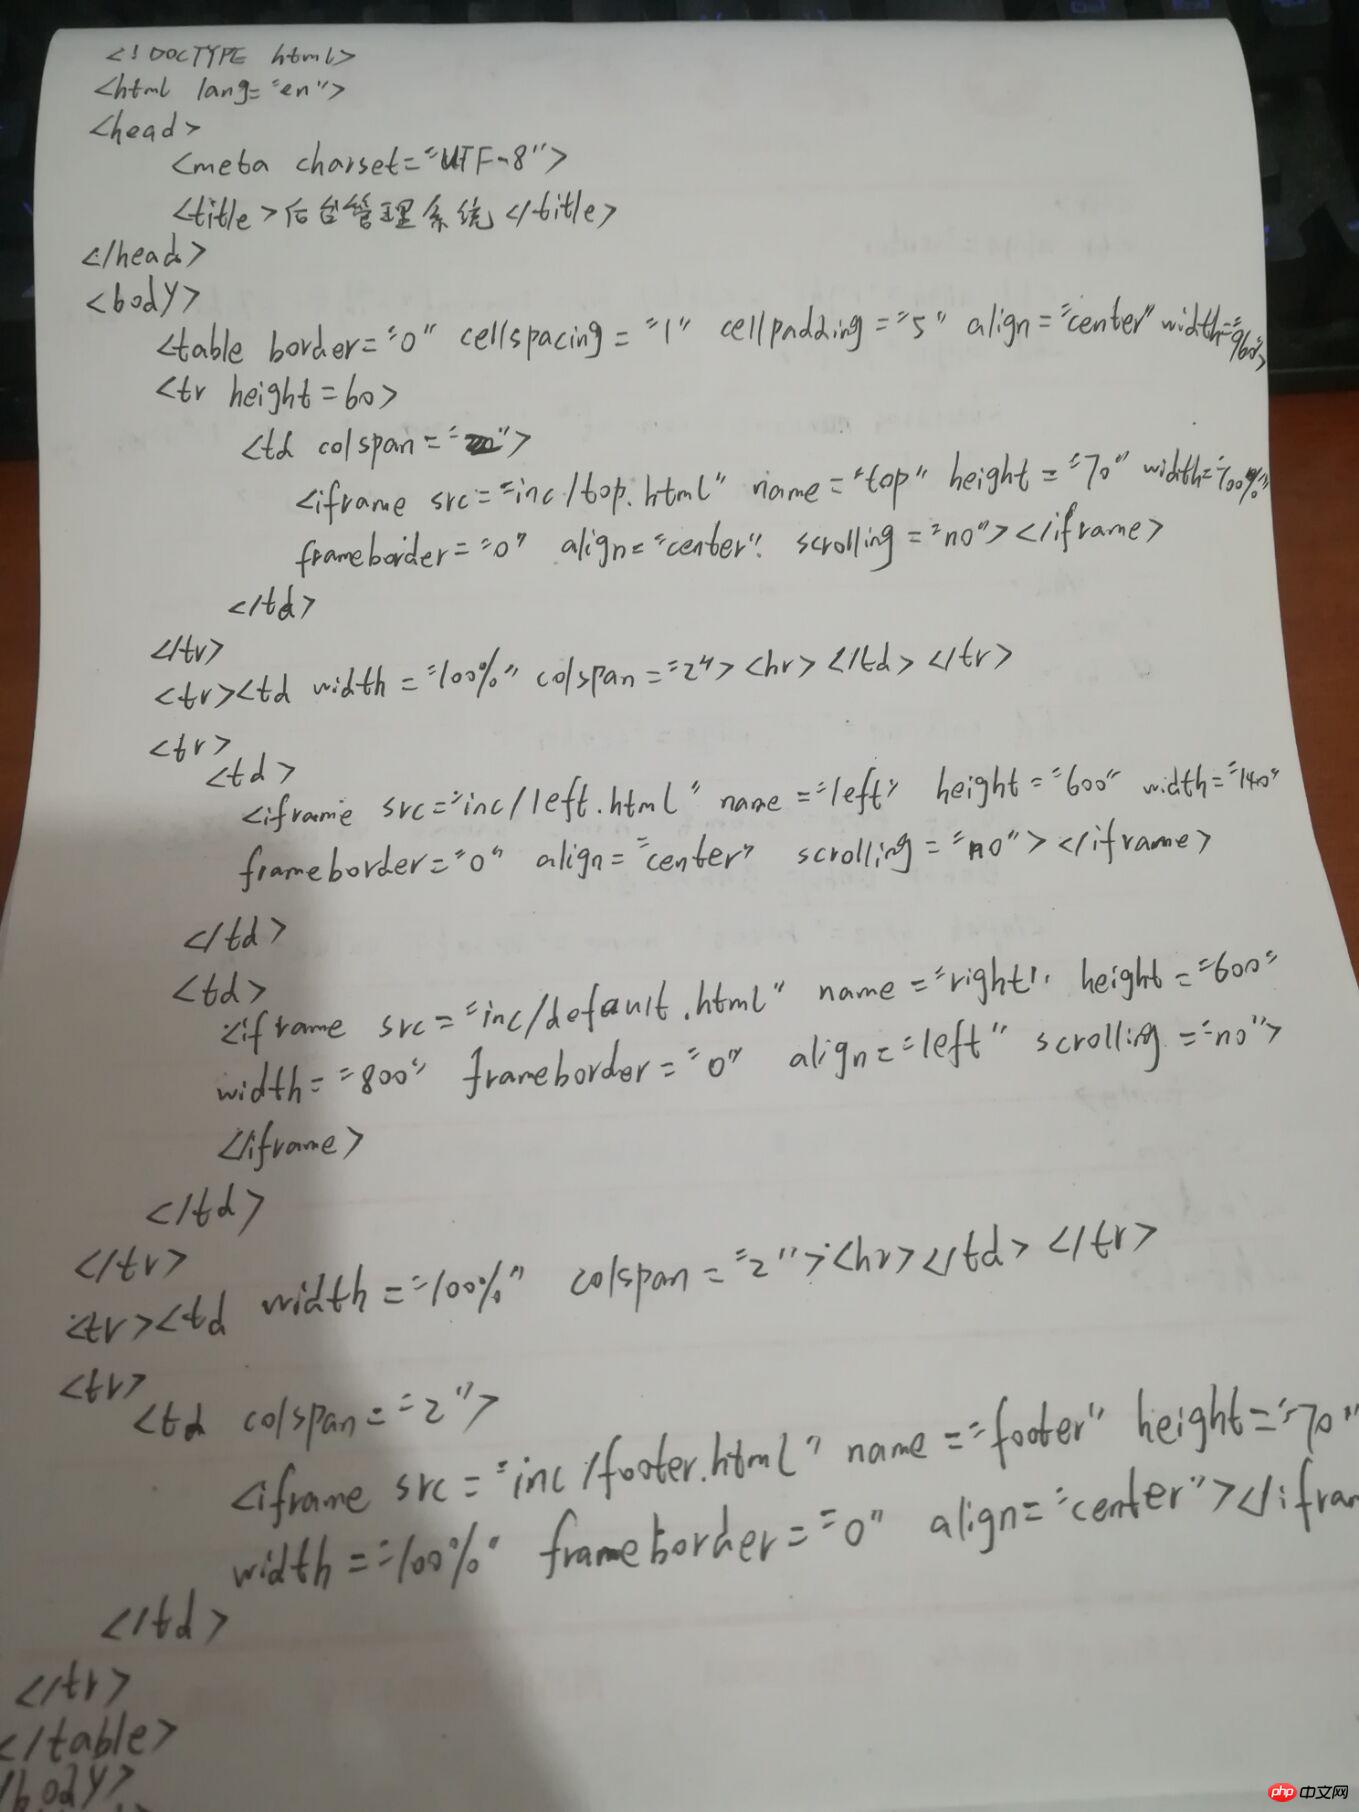 <!DOCTYPE html>
<html lang="en">
<head>
<meta charset="UTF-8">
<title>后台管理系统</title>
</head>
<body>
<table border="0" cellspacing="1" cellpadding="5" align="center" width="960">
<tr height=60>
<td colspan="">
<iframe src="inc/top.html" name="top" height="70" width="100%"
frameborder="0" align="center" scrolling="no"></iframe>
</td>
</tr>
<tr><td width="100%" colspan="2"><hr></td></tr>
<tr>
<td>
<iframe src="inc/left.html" name="left" height="600" width="140"
frameborder="0" align="center" scrolling="no"></iframe>
</td>
<td>
<iframe src="inc/default.html" name="right" height="600"
width="800" frameborder="0" align="left" scrolling="no">
</iframe>
</td>
</tr>
<tr><td width="100%" colspan="2"><hr></td></tr>
<tr>
<td colspan="2">
<iframe src="inc/footer.html" name="footer" height="70"
width="100%" frameborder="0" align="center"></ifram
</td>
</tr>
</table>
/body>
php 中文网